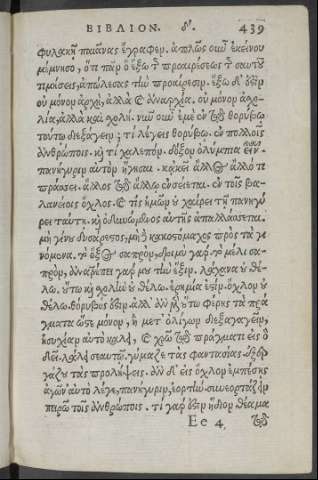 ΒΙΒΛΙΟΝ. δ'. 439
φυλακῇ παιᾶνας ἔγραφεν. ἁπλῶς οὖν ἐκείνου
μέμνησο, ὅτι πᾶν ὃ ἔξω τῆς προαιρέσεως τῆς σαυτοῦ
τιμήσεις, ἀπώλεσας τὴν προαίρεσιν. ἔξω δ' ἐστὶν
οὐ μόνον ἀρχὴ, ἀλλὰ καὶ ἀναρχία. οὐ μόνον ἀσχο-
λία, ἀλλὰ καὶ σχολή. νῦν οὖν ἐμὲ ἐν τῷ θορύβῳ
τούτῳ διεξάγειν; τί λέγεις θορύβῳ. ἐν πολλοῖς
ἀνθρώποις. καὶ τί χαλεπόν. δόξον ὀλύμπια εἶναι
πανήγυριν αὐτὸν ἥγησαι. κἀκεῖ ἄλλος ἄλλό τι
πράσσει. ἄλλος τῷ ἄλλῳ ἐνσείεται. ἐν τοῖς βα-
λανείοις ὄχλος. καὶ τίς ἡμῶν οὐ χαίρει τῇ πανηγύ
ρει ταύτῃ. καὶ ὀδυνώμενος αὐτῆς ἀπαλλάσσεται.
μὴ γίνου δυσάρεστος, μὴ δὲ κακοστόμαχος πρὸς τὰ γε
νόμενα. τὸ ὄξος σαπρὸν, δριμὺ γάρ. τὸ μέλι σα-
πρὸν, ἀνατρέπει γάρ μου τὴν ἕξιν. λάχανα οὐ θέ-
λω. οὕτω καὶ σχολὴν οὐ θέλω. ἐρημία ἐστίν. ὄχλον οὐ
θέλω. θόρυβος ἐστίν. ἀλλ' ἂν μὲν οὕτω φέρῃ τὰ πρά
γματα ὥστε μόνον, ἢ μετ' ὀλίγων διεξαγαγεῖν,
ἡσυχίαν αὐτὸ κάλει, καὶ χρῶ τῷ πράγματι εἰς ὃ
δεῖ. λάλει σεαυτῷ. γύμναζε τὰς φαντασίας. ἐξερ
γάζου τὰς προλήψεις. ἂν δ' εἰς ὄχλον ἐμπέσῃς
ἀγῶνα αὐτὸ λέγε, πανήγυριν, ἑορτὴν συνεορτάζειν
πειρῶ τοῖς ἀνθρώποις. τί γάρ ἐστιν ἥδιον θέαμα
Ee 4 τῷ